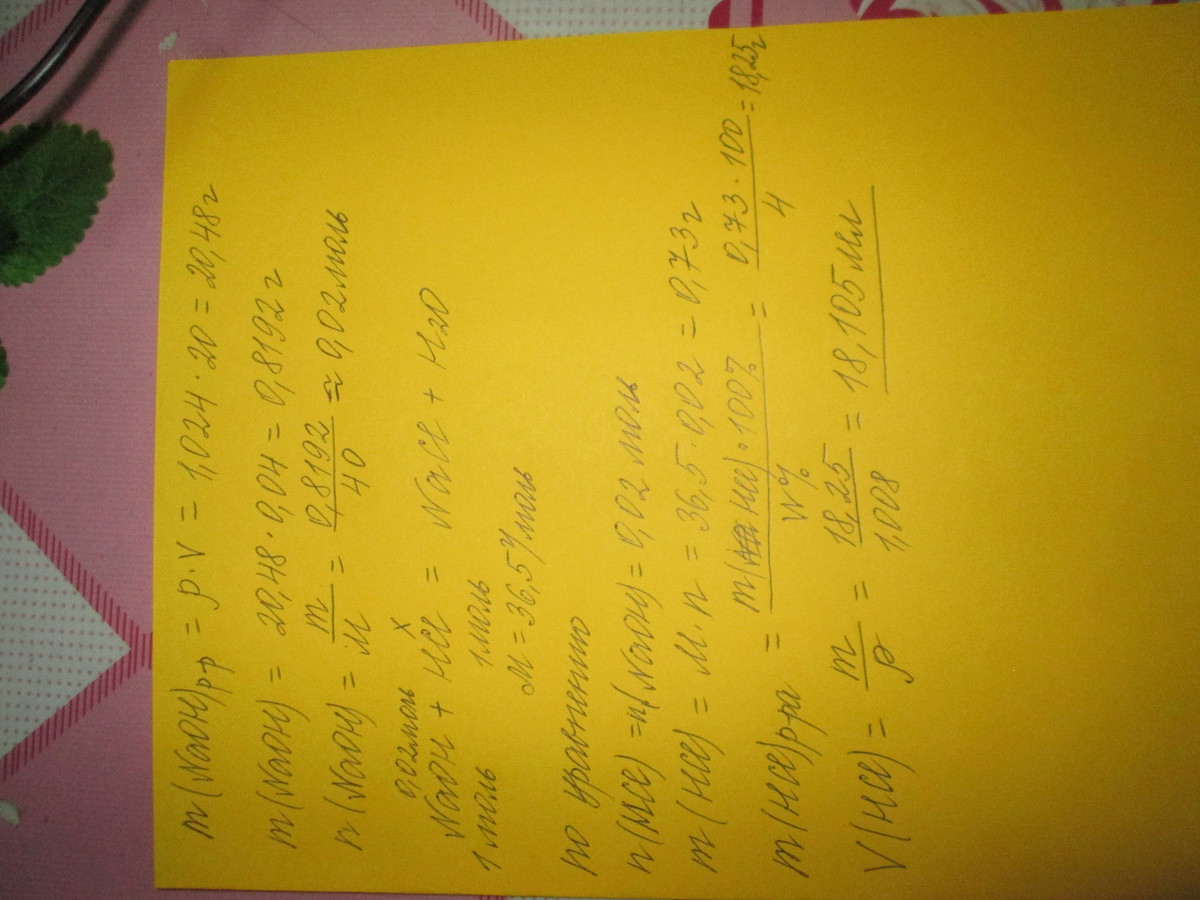 m(NaOH)рр = ρ·V = 1,024·20 = 20,48г
m(NaOH) = 20,48·0,04 = 0,8192г
n(NaOH) = m/M = 0,8192/40 ≈ 0,02моль
0,02моль x
NaOH + HCl = NaCl + H2O
1моль 1моль
M = 36,5г/моль
по уравнению
n(HCl) = n(NaOH) = 0,02 моль
m(HCl) = M·n = 36,5·0,02 = 0,73г
m(HCl)р-ра = m(HCl)·100%/W% = 0,73·100/4 = 18,25г
V(HCl) = m/ρ = 18,25/1,008 = 18,105мл